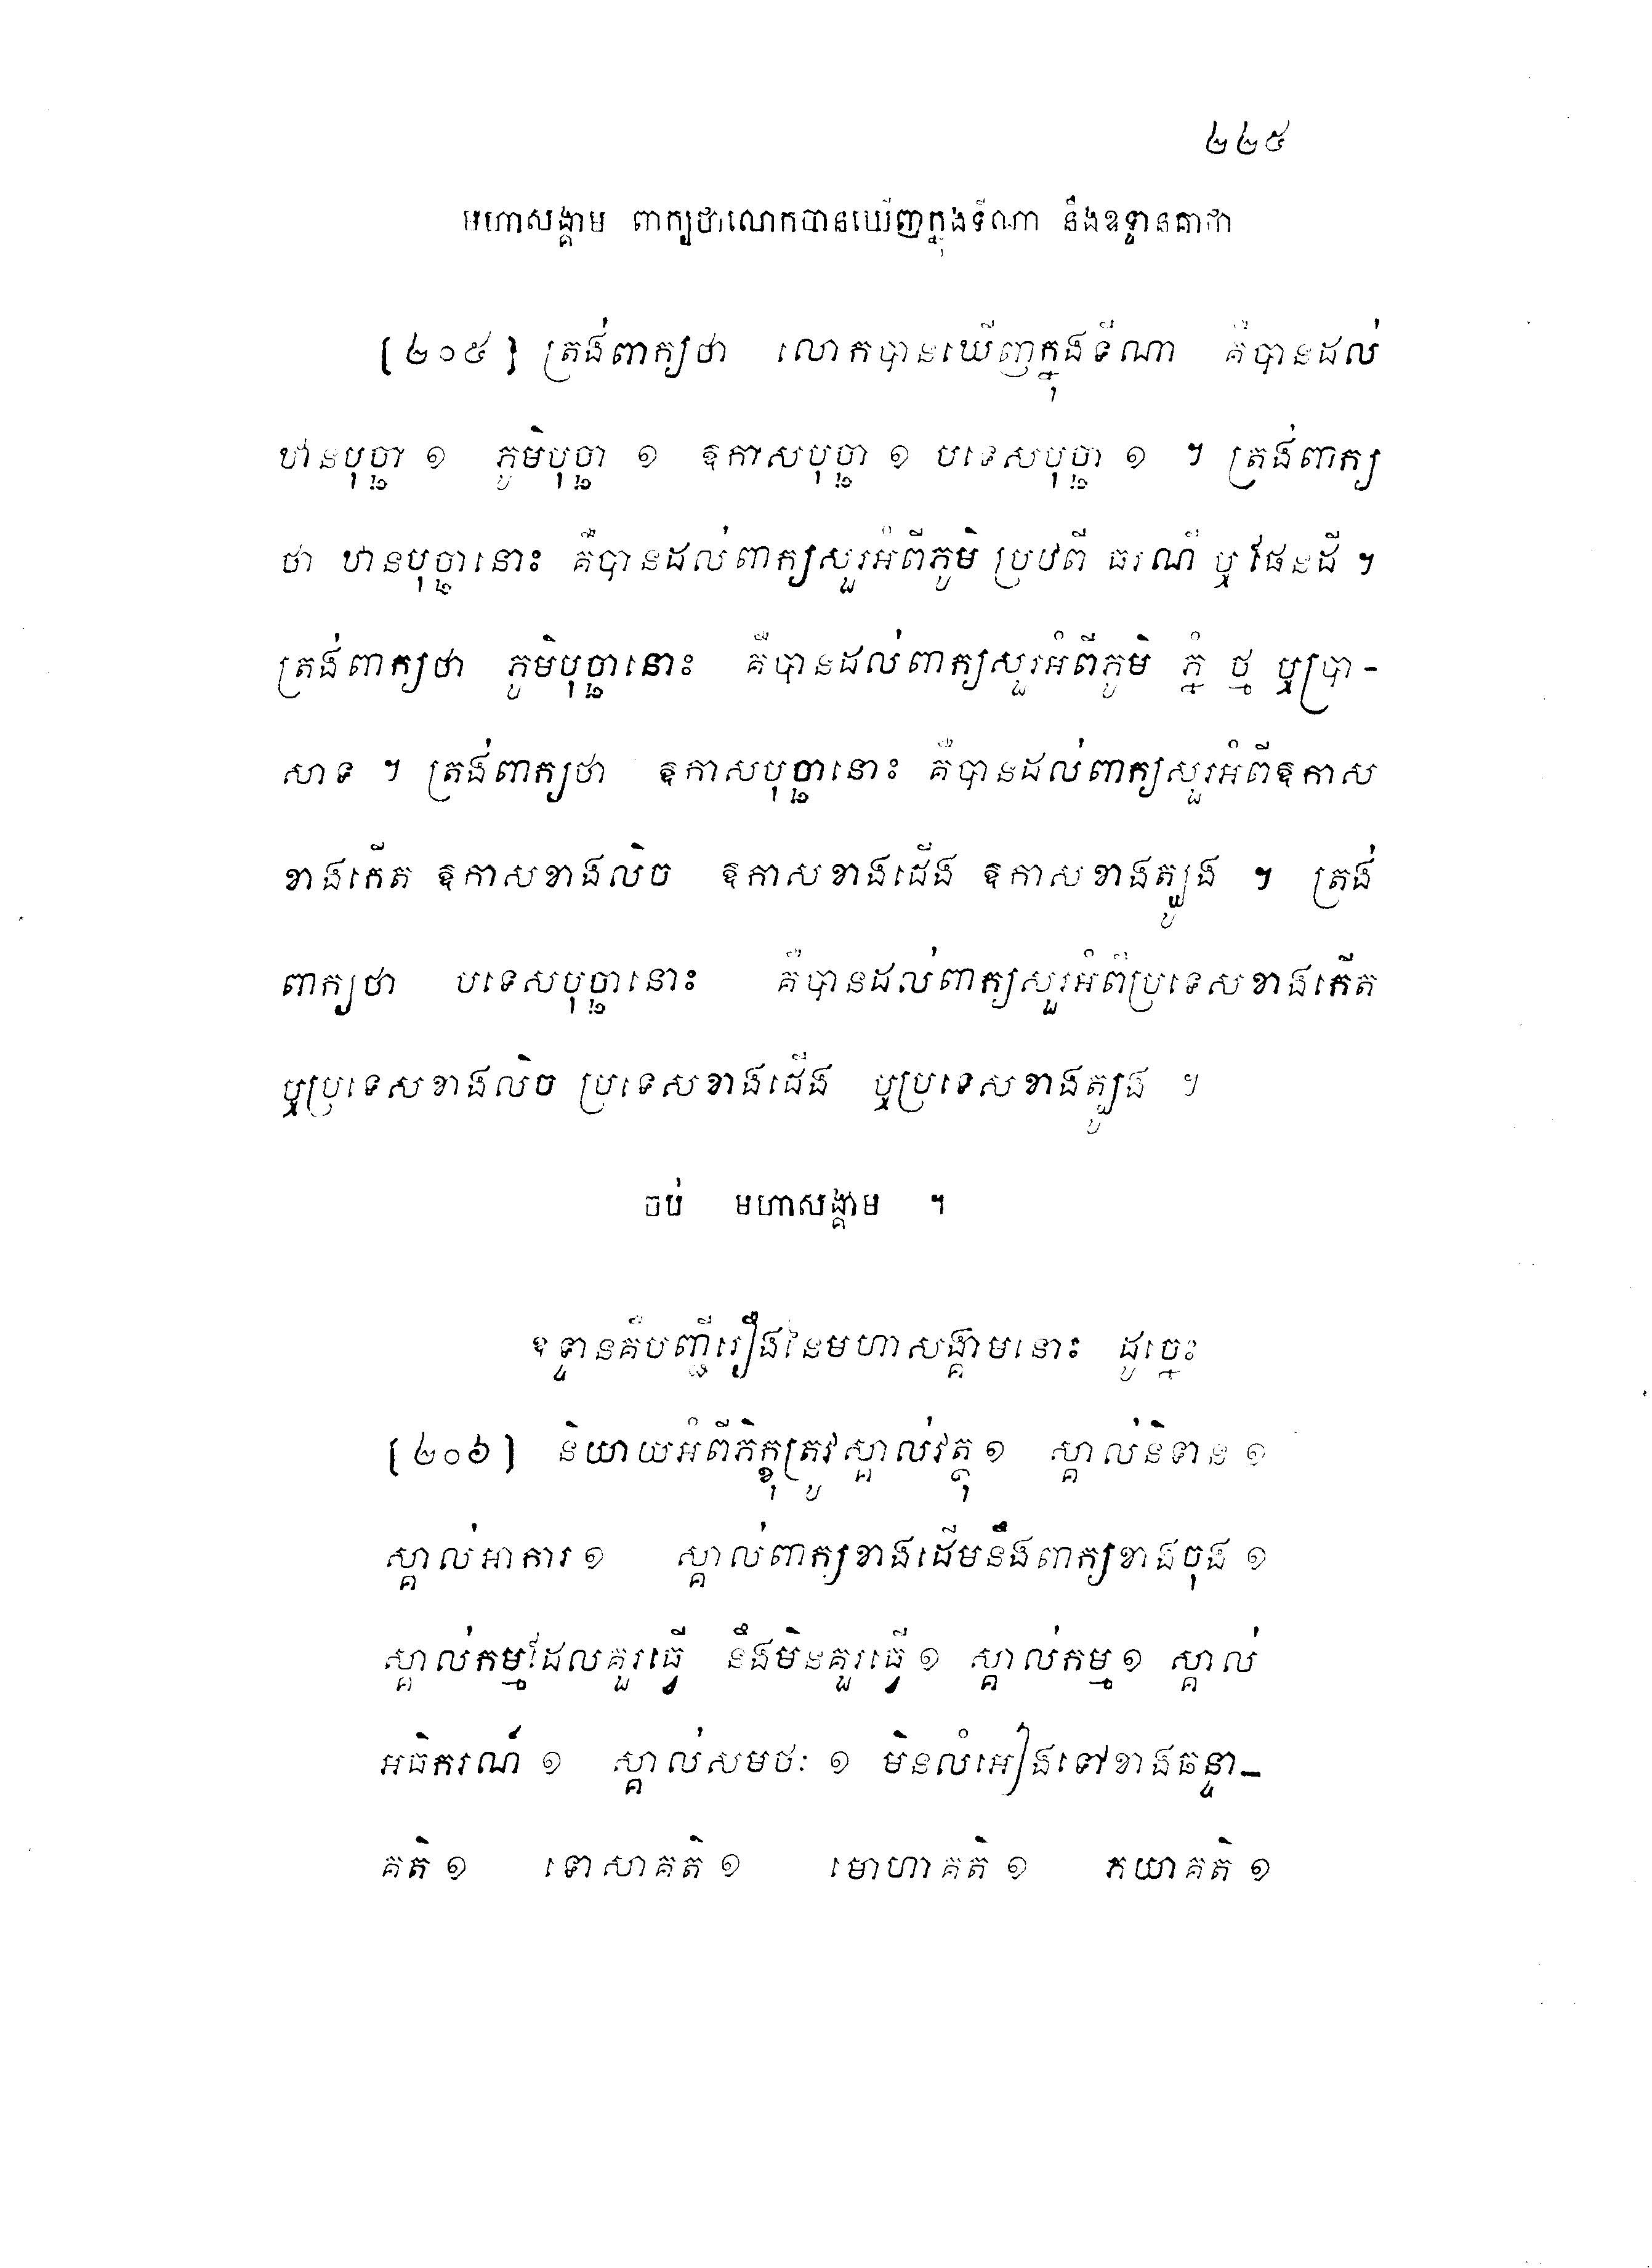 ២២៥
មហាសង្គាម ពាក្យថាលោកបានឃើញក្នុងទីណា នឹងឧទ្ទានគាថា
[២០៥] ត្រង់ពាក្យថា លោកបានឃើញក្នុងទីណា គឺបានដល់
ឋានបុច្ឆា ១ ភូមិបុច្ឆា ១ ឱកាសបុច្ឆា ១ បទេសបុច្ឆា ១ ។ ត្រង់ពាក្យ
ថា ឋានបុច្ឆានោះ គឺបានដល់ពាក្យសួរអំពីភូមិ ប្រឋពី ធរណី ឬ ផែនដី ។
ត្រង់ពាក្យថា ភូមិបុច្ឆានោះ គឺបានដល់ពាក្យសួរអំពីភូមិ ភ្នំ ថ្ម ឬប្រា-
សាទ ។ ត្រង់ពាក្យថា ឱកាសបុច្ឆានោះ គឺបានដល់ពាក្យសួរអំពីឱកាស
ខាងកើត ឱកាសខាងលិច ឱកាសខាងជើង ឱកាសខាងត្បូង ។ ត្រង់
ពាក្យថា បទេសបុច្ឆានោះ គឺបានដល់ពាក្យសួរអំពីប្រទេសខាងកើត
ឬប្រទេសខាងលិច ប្រទេសខាងជើង ឬប្រទេសខាងត្បូង ។
ចប់ មហាសង្គាម ។
ឧទ្ទានគឺបញ្ជីរឿងនៃមហាសង្គាមនោះ ដូច្នេះ
[២០៦] និយាយអំពីភិក្ខុត្រូវស្គាល់វត្ថុ ១ ស្គាល់និទាន ១
ស្គាល់អាការ ១ ស្គាល់ពាក្យខាងដើមនឹងពាក្យខាងចុង ១
ស្គាល់កម្មដែលគួរធ្វើ នឹងមិនគួរធ្វើ ១ ស្គាល់កម្ម ១ ស្គាល់
អធិករណ៍ ១ ស្គាល់សមថៈ ១ មិនលំអៀងទៅខាងឆន្ទា-
គតិ ១ ទោសាគតិ ១ មោហាគតិ ១ ភយាគតិ ១